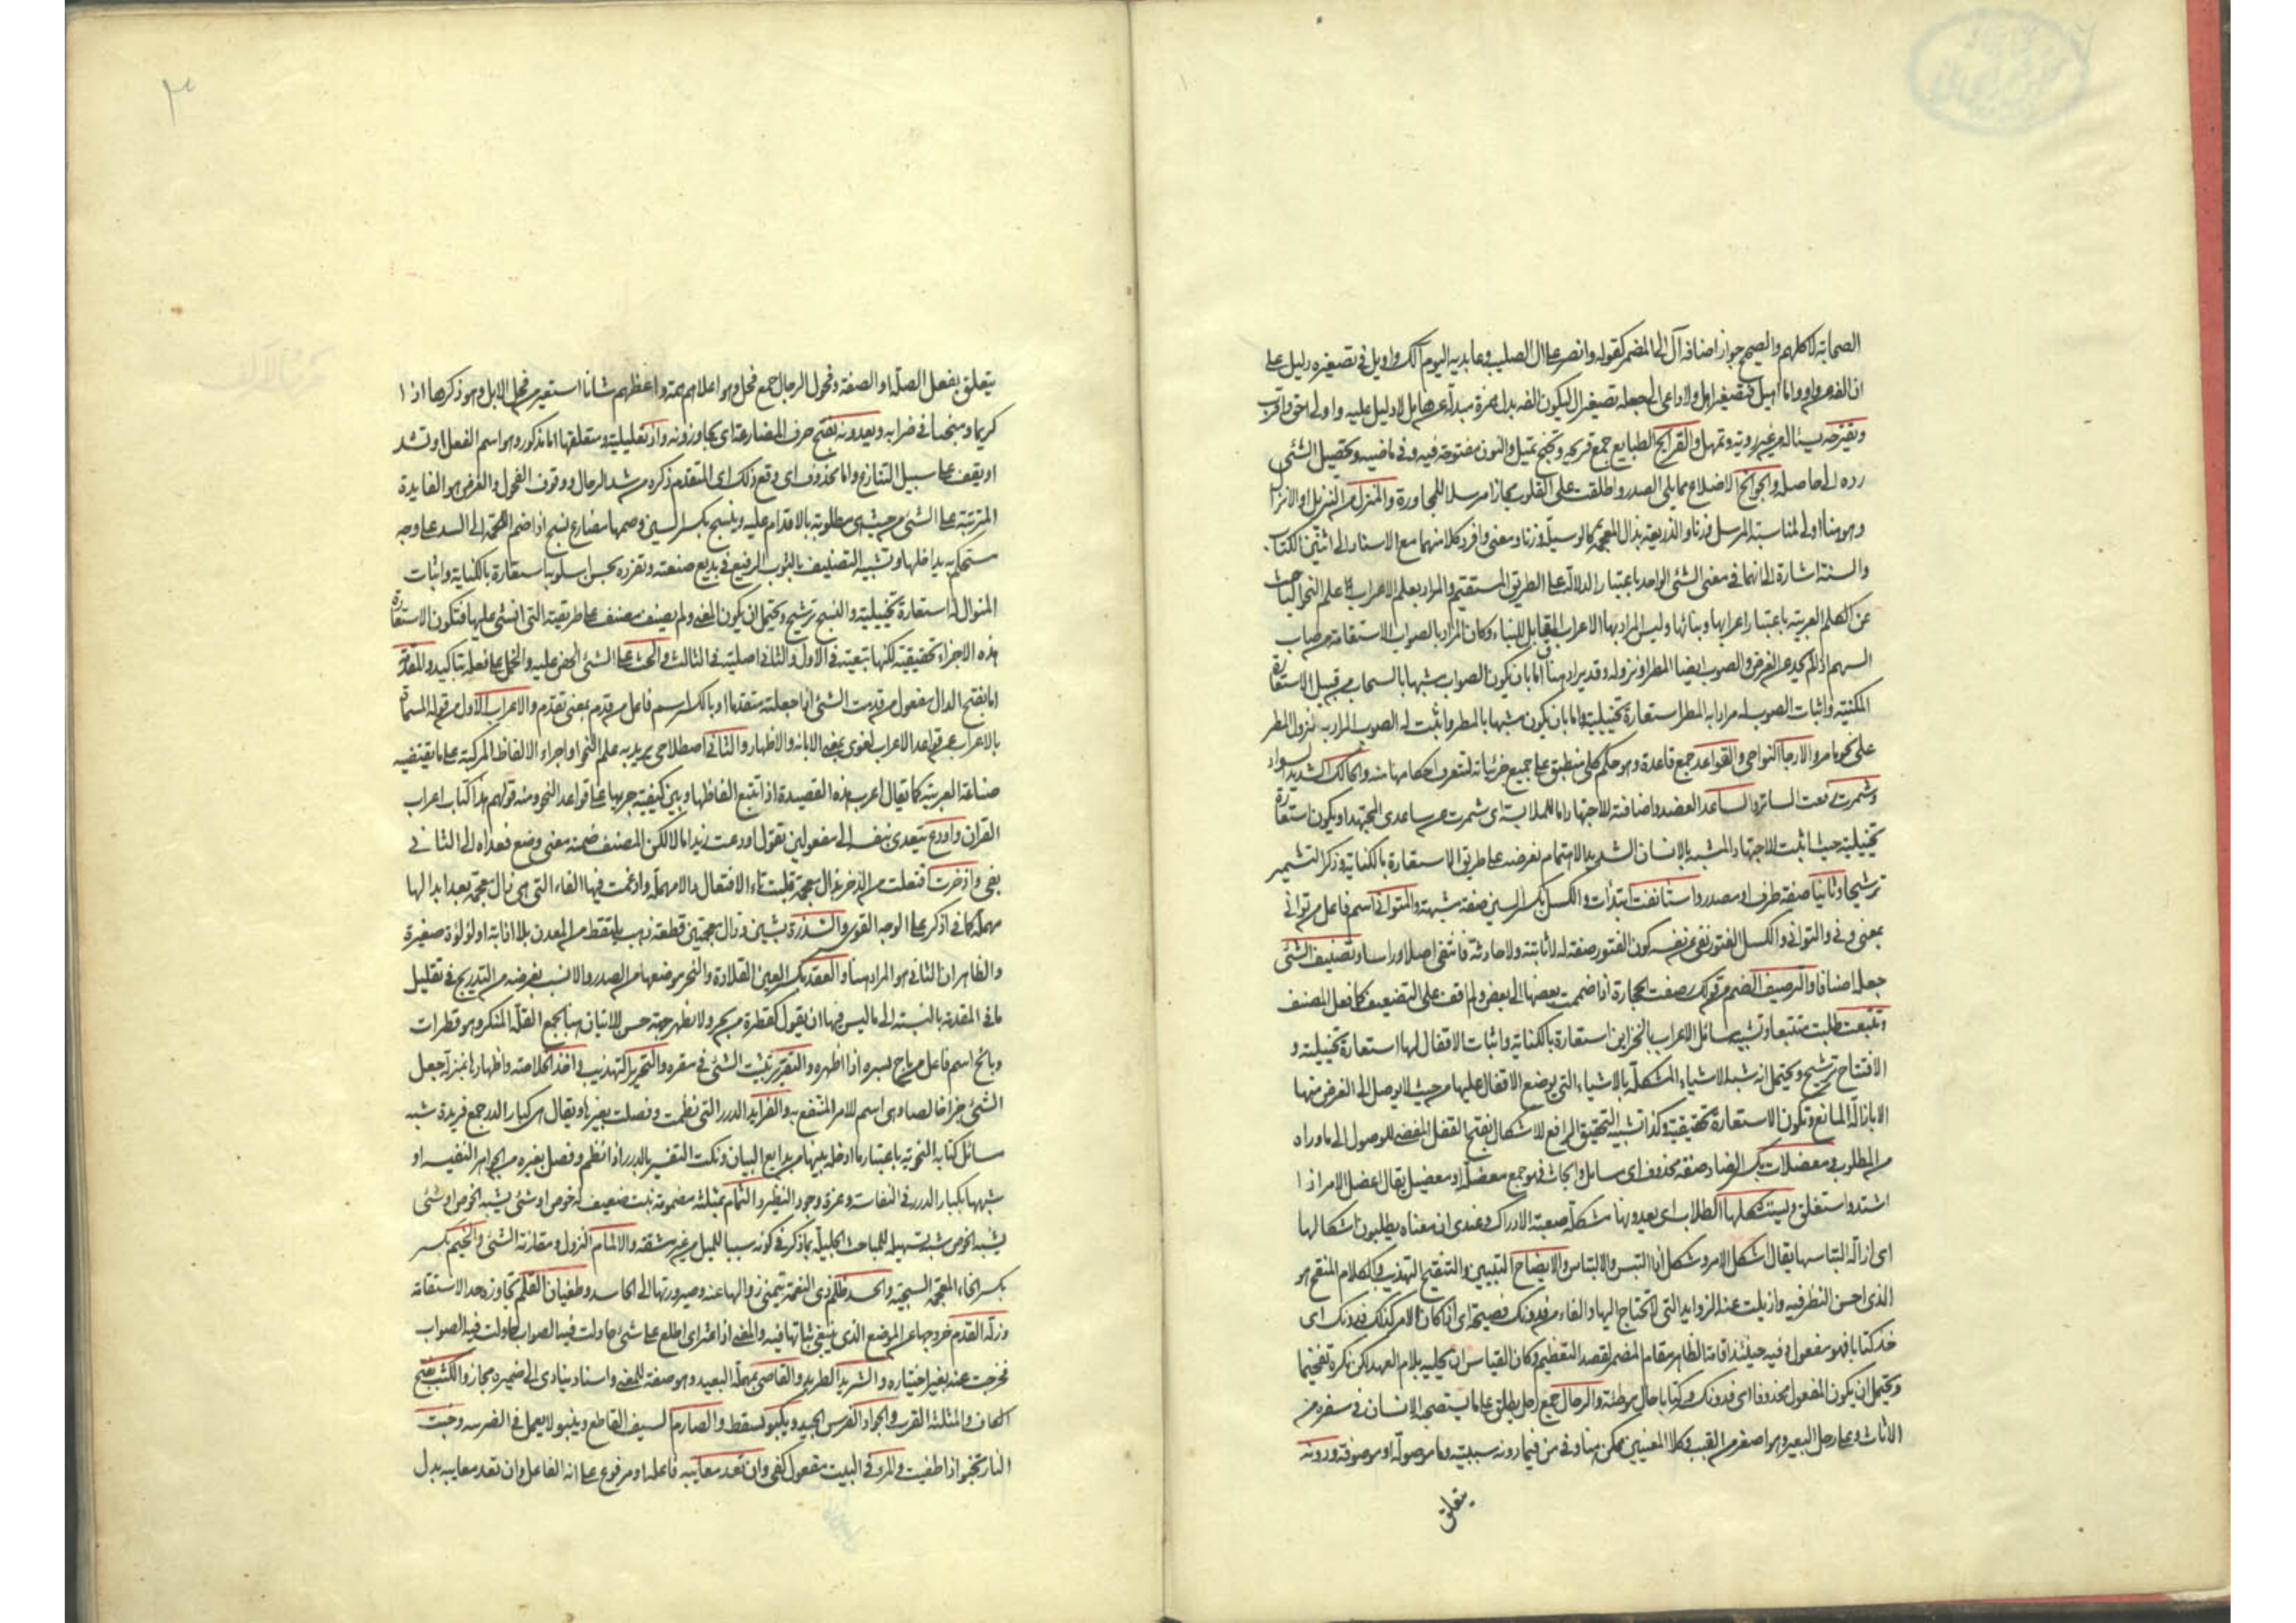 الصحابة لا كلهم والصحيح جواز اضافة آل الى المضمر كقوله وانصر على ال الصليب وعابديه اليوم آلك واويل في تصغيره دليل على
ان الفه واو واما اهيل فتصغير اهل ولا داعى الى جعله تصغير ال ليكون الفه بدل همزة مبدلة عن هاء بل لا دليل عليه واولى احق واقرب
وتقترحه يسئاله من غير روية وتمهل والقرائح الطبايع جمع قريحة وتجنح تميل والنون مفتوحة فيه وفي ماضيه وتحصيل الشئ
رده الى حاصله والجوانح الاضلاع مما يلي الصدر واطلقت على القلوب مجازا مرسلا للمجاورة والمنزل من التنزيل او الانزال
وهو هنا اولى لمناسبة المرسل وزنا والذريعة بذال المعجمة كالوسيلة وزنا ومعنى وافرد كلا منهما مع الاسناد الى اثنين الكتاب
والسنة اشارة الى انهما في معنى الشئ الواحد باعتبار الدلالة على الطريق المستقيم والمراد بعلم الاعراب علم النحو الباحث
عن الكلم العربية باعتبار اعرابها وبنائها وليس المراد بها الاعراب المقابل للبناء وكان المراد بالصواب الاستقامة من صاب
السهم اذا لم يحد عن الغرض والصوب ايضا المطر او نزوله وقد يراد هنا اما بان يكون الصواب مشبها بالسحاب من قبيل الاستعارة
المكنية واثبات الصوب له مرادا به المطر استعارة تخييلية واما بان يكون مشبها بالمطر واثبت له الصوب المراد به نزول المطر
على نحو ما مر والارجا النواحي والقواعد جمع قاعدة وهو حكم كلي منطبق على جميع جزئياته لتتعرف احكامها منه والحالك الشديد السواد
وشمرت رفعت الساتر والساعد العضد واضافته للاجتهاد اما للملابسة اى شمرت عن ساعدى المجتهد او يكون استعارة
تخييلية حيث اثبت للاجتهاد المشبه بالانسان الشديد الاهتمام بغرضه على طريق الاستعارة بالكناية وذكر التشمير
ترشيحا وثانيا صفة ظرف او مصدر واستانفت ابتدات والكسل بكسر السين صفة مشبهة والمتوانى اسم فاعل من توانى
بمعنى وني والتواني والكسل الفتور نفى عن نفسه كون الفتور صفة له لا ثابتة ولا حادثة فانتفى اصلا وراسا وتصنيف الشئ
جعله اصنافا والترصيف الضم من قولك رصفت الحجارة اذا ضممت بعضها الى بعض ولم اقف على التضعيف كما فعل المصنف
وتتبعت طلبت متتبعا وتشبيه مسائل الاعراب بالخزاين استعارة بالكناية واثبات الاقفال لها استعارة تخييلية و
الافتتاح ترشيح ويحتمل انه شبه الاشياء المشكلة بالاشياء التي يوضع الاقفال عليها من حيث لا يوصل الى الغرض منها
الا بازالة المانع وتكون الاستعارة تحقيقية وكذا تشبيه التحقيق الرافع للاشكال بفتح القفل المفضى للوصول الى ما وراه
من المطلوب ومعضلات بكسر الضاد صفة محذوف اى مسائل وابحاث فهو جمع معضلة او معضل يقال اعضل الامر اذا
اشتد واستغلق ويستشكلها الطلاب اى يعدونها مشكلة صعبة الادراك وعندى ان معناه يطلبون اشكالها
اى ازالة التباسها يقال اشكل الامر وشكل اذا التبس والالتباس والايضاح التبيين والتنقيح التهذيب والكلام المنقح هو
الذى احسن النظر فيه وازيلت عنه الزوايد التي لا يحتاج اليها والفاء من فدونك فصيحة اى اذا كان الامر كذلك فدونك اى
خذ كتابا فهو مفعول وفيه حينئذ اقامة الظاهر مقام المضمر لقصد التعظيم وكان القياس ان يحليه بلام العهد لكن نكره تفخيما
ويحتمل ان يكون المفعول محذوفا اى فدونكه وكتابا حال موطئة والرحال جمع رحل يطلق على ما يستصحبه الانسان في سفره من
الاثاث وعلى رحل البعير وهو اصغر من القتب وكلا المعنيين ممكن هنا وفي من فيما دونه سببية وما موصولة او موصوفة ودونه
يتعلق
يتعلق بفعل الصلة او الصفة وفحول الرجال جمع فحل وهو اعلاهم همة واعظمهم شانا استعير من فحل الابل وهو ذكرها اذا
كريما ومنجبا في ضرابه ويعدونه بفتح حرف المضارعة اى يجاوزونه واذ تعليلية ومتعلقها اما مذكور وهو اسم الفعل او تشد
او يقف على سبيل التنازع واما محذوف اى وقع ذلك اى المتقدم ذكره من شد الرحال ووقوف الفحول والغرض هو الفايدة
المترتبة على الشئ من حيث هى مطلوبة بالاقدام عليه وينسج بكسر السين وضمها مضارع نسج اذا ضم اللحمة الى السدى على وجه
مستحكم به يداخلها وتشبيه التصنيف بالثوب الرفيع في بديع صنعته وتفرده بحسن اسلوبه استعارة بالكناية واثبات
المنوال له استعارة تخييلية والنسج ترشيح ويحتمل ان يكون المعنى ولم يصنف مصنف على طريقته التى انشئ عليها فتكون الاستعارة
هذه الاجزاء تحقيقية لكنها تبعية في الاول والثانى اصلية في الثالث والحث على الشئ الحض عليه والحمل على فعله بتاكيد والمقدمة
اما بفتح الدال مفعول من قدمت الشئ اذا جعلته متقدما او بالكسر اسم فاعل من قدم بمعنى تقدم والاعراب الاول من قوله المسماة
بالاعراب عن قواعد الاعراب لغوى بمعنى الابانة والاظهار والثانى اصطلاحى يريد به علم النحو او اجراء الالفاظ المركبة على ما يقتضيه
صناعة العربية كما يقال اعرب هذه القصيدة اذا تتبع الفاظها وبين كيفية جريها على قواعد النحو ومنه قولهم هذا كتاب اعراب
القران واودع يتعدى بنفسه الى مفعولين تقول اودعت زيدا مالا لكن المصنف ضمنه معنى وضع فعداه الى الثانى
بفى واذخرت افتعلت من الذخر بذال معجمة قلبت تاء الافتعال دالا مهملة وادغمت فيها الفاء التى هى ذال معجمة بعد ابدالها
مهملة كما في ادكر على الوجه القوى والشذرة بشين وذال معجمتين قطعة ذهب يلتقط من المعدن بلا اذابة او لؤلؤة صغيرة
والظاهر ان الثانى هو المراد هنا والعقد بكسر العين القلادة والنحر موضعها من الصدر والانسب بغرضه من التدريج في تقليل
ما في المقدمة بالنسبة الى ما ليس فيها ان يقول كقطرة من بحر ولا يظهر جهة حسن للاتيان هنا بجمع القلة المنكر وهو قطرات
وبائح اسم فاعل من باح بسره اذا اظهره والتقرير تثبيت الشئ في مقره والتحرير التهذيب واخذ الخلاصة واظهارها بمنزلة جعل
الشئ حرا خالصا وهى اسم للامر المنتفع به والفرايد الدرر التى نظمت وفصلت بغيرها ويقال هى كبار الدر جمع فريدة شبه
مسائل كتابه النحوية باعتبار ما ادخله بينها من بدايع البيان ونكت التفسير بالدرر اذا نظم وفصل بغيره من الجواهر النفيسة او
شبهها بكبار الدرر في النفاسة وعزة وجود النظير والثمام بمثلثة مضمومة نبت ضعيف له خوص او شئ يشبه الخوص
يشبه الخوص شبه تسهيله للمباحث الجليلة بما ذكر في كونه سببا للنيل من غير مشقة والالمام النزول ومقاربة الشئ والخيم بكسر
بكسر الخاء المعجمة السجية والحسد ظلم ذى النعمة بتمنى زوالها عنه وصيرورتها الى الحاسد وطغيان القلم تجاوزه حد الاستقامة
وزلة القدم خروجها عن الموضع الذى ينبغى ثباتها فيه والمعنى اذا عثر اى اطلع على شئ حاولت فيه الصواب
فخرجت عنه بغير اختياره والشريد الطريد والقاصى بمهملة البعيد وهو صفة للمعنى واسناد ينادى الى ضميره مجاز والكثب بفتح
الكاف والمثلثة القرب والجواد الفرس الجيد ويكبو يسقط والصارم السيف القاطع وينبو لا يعمل في الضريبة وخبت
النار تخبو اذا طفيت والمرء في البيت مفعول كفى وان تعد معايبه فاعله او مرفوع على انه الفاعل وان تعد معايبه بدل